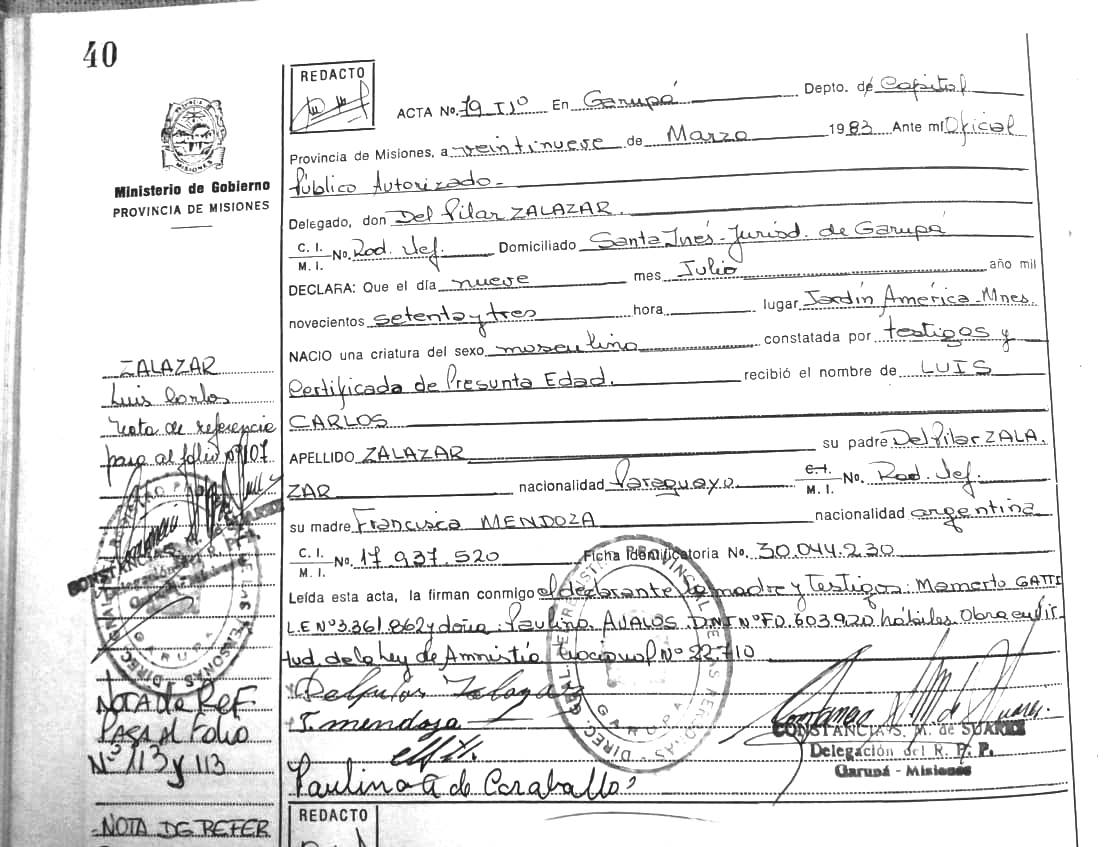 40
REDACTO
ACTA No. 79 Tº En Garupá Depto. de Capital
Ministerio de Gobierno
PROVINCIA DE MISIONES
Provincia de Misiones, a veintinueve de Marzo 1983 Ante mí Oficial
Público Autorizado.-
Delegado, don Del Pilar ZALAZAR.
C. I.
M. I. No. Rad. Jef. Domiciliado Santa Inés-Jurisd. de Garupá
DECLARA: Que el día nueve mes Julio año mil
novecientos setenta y tres hora lugar Jardín América-Mnes.
NACIO una criatura del sexo masculino constatada por testigos y
Certificada de Presunta Edad. recibió el nombre de LUIS
CARLOS
APELLIDO ZALAZAR su padre Del Pilar ZALA.
ZAR nacionalidad Paraguaya. C.I.
M. I. No. Rad. Jef.
su madre Francisca MENDOZA nacionalidad argentina
C. I.
M. I. No. 17.937.520 Ficha Identificatoria No. 30.044.230
Leída esta acta, la firman conmigo el declarante la madre y Testigos: Mamerto GATTI
L.E Nº 3.361.862 y doña: Paulina AVALOS DNI Nº F0.603.920 hábiles. Obra en vir
tud de la Ley de Amnistía Nacional Nº 22.710
Delpilar Zalazar
F. mendoza
Paulina A de Caraballo
CONSTANCIA S. M. de SUAREZ
Delegación del R. P. P.
Garupá - Misiones
ZALAZAR
Luis Carlos
Nota de referencia
pasa al folio Nº 107
NOTA DE REF
PASA AL FOLIO
Nº 113 y 113
NOTA DE REFER
REDACTO